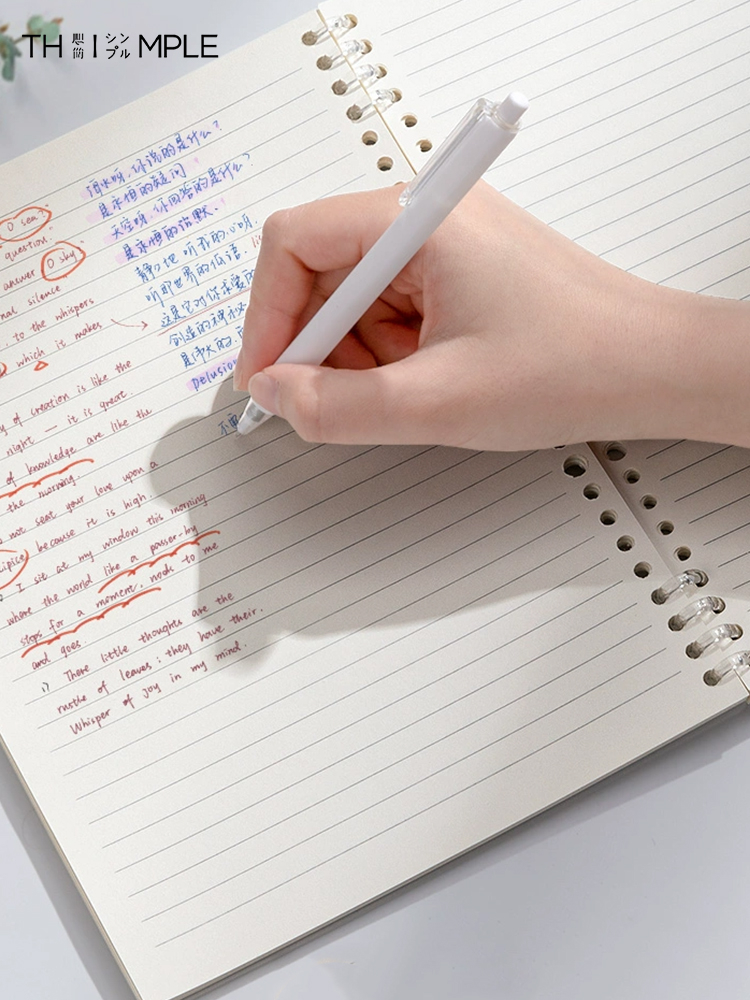 THISIMPLE
O sea
question.
answer O sky
nal silence
to the whispers
which it makes
y of creation is like the
night — it is great.
of knowledge are like the
the morning.
not seat your love upon a
cipice because it is high.
I sit at my window this morning
where the world like a passer-by
stops for a moment, nods to me
and goes.
There little thoughts are the
rustle of leaves; they have their
Whisper of joy in my mind.
海水呀,你说的是什么?
是永恒的疑问
天空呀,你回答的是什么?
是永恒的沉默.
静静地听我的心呀.
听那世界的低语.
这是它对你求爱的
创造的神秘
是伟大的.
Delusion
不